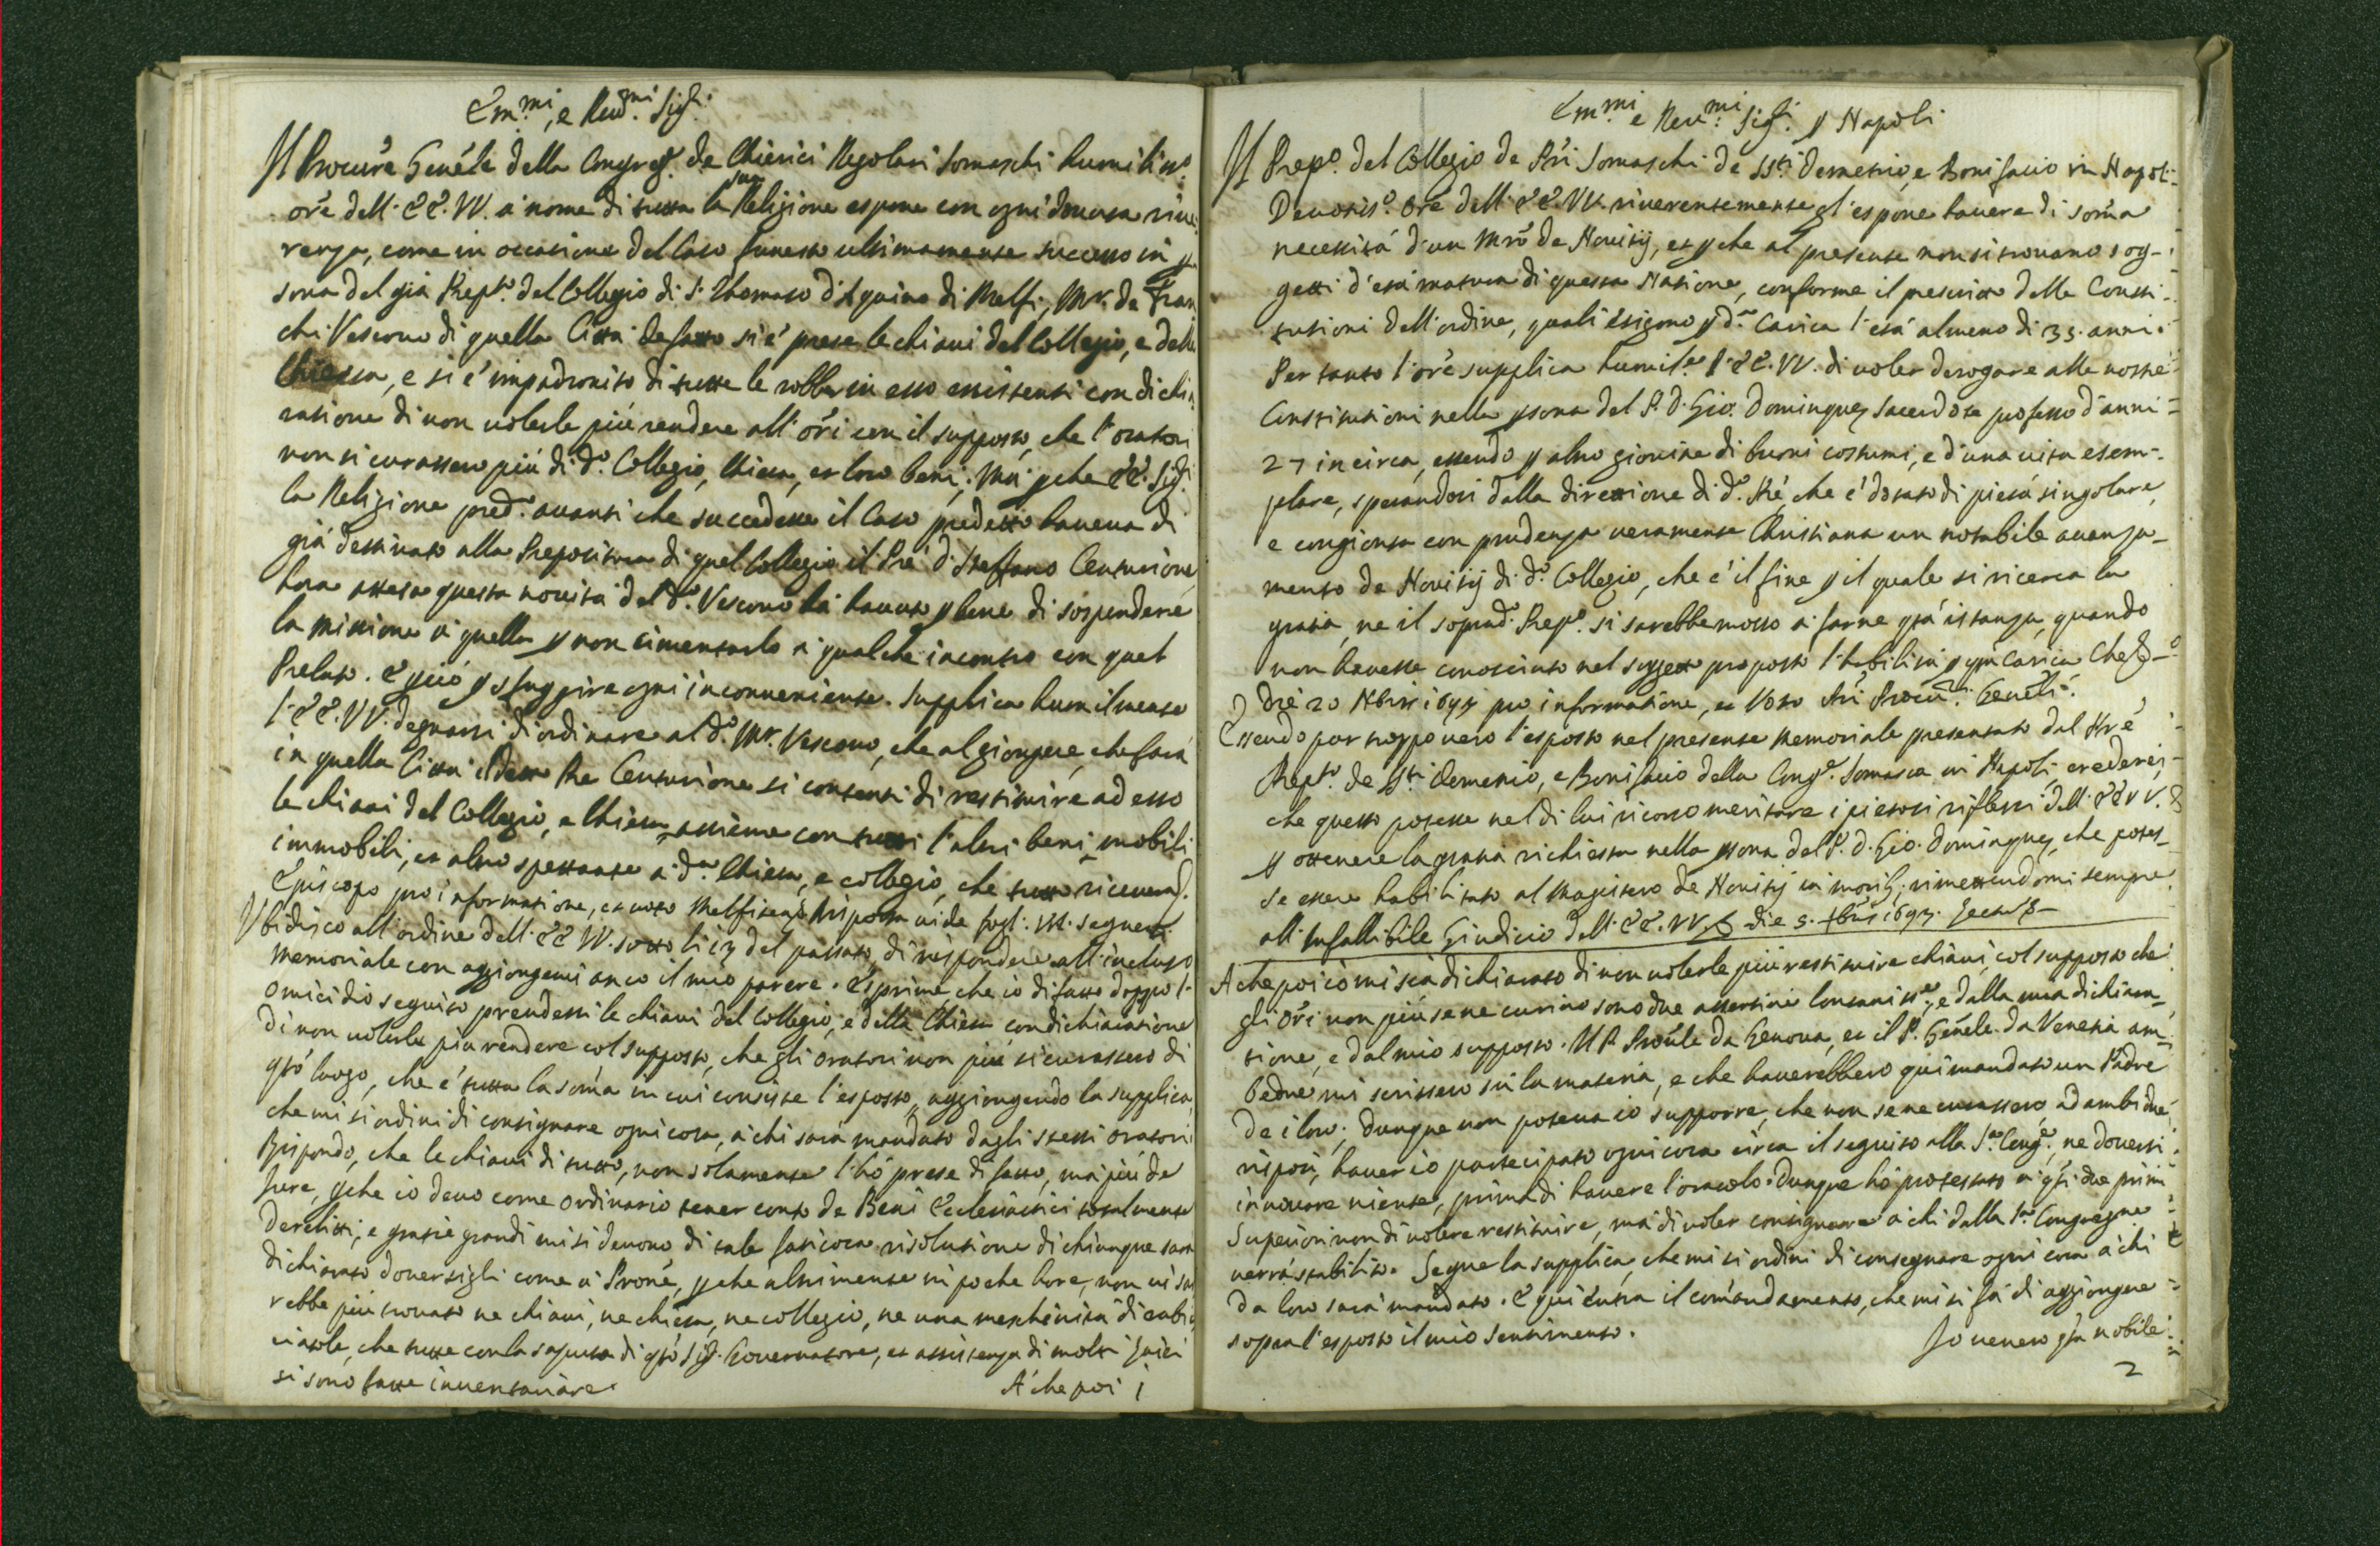 Em.mi, e Reu.mi Sig.ri
Il Procur.e Gen.le della Congreg. de Chierici Regolari Somaschi humiliss.o
ore dell' EE. VV. a nome di tutta la sua Religione espone con ogni douuta riue
renza, come in occasione del Caso funesto ultimamente successo in p
sona del già Prep.to del Collegio di S. Thomaso d'Aquino di Melfi, Mr. de Fran
chi Vescouo di quella Città de facto si è prese le chiaui del Collegio, e della
Chiesa, e si è impadronito di tutte le robbe in esso essistenti con dichia
ratione di non volerle più rendere all' ori con il supposto, che l'oratori
non si curassero più di d.o Collegio, Chiesa, et loro beni; Mà perche EE. Sig.ri
la Religione pred.a auanti che succedesse il Caso predetto haueua di
già destinato alla Prepositura di quel Collegio il Pre D. Steffano Centurione,
hora attesa questa nouità del d.o Vescouo hà hauuto p bene di sospendere
la missione à quella p non cimentarlo à qualche incontro con quel
Prelato. E perciò p sfuggire ogni inconueniente. Supplica humilmente
l' EE. VV. degnarsi di ordinare al d.o Mr. Vescouo, che al giongere, che farà
in quella Città il detto Pre Centurione si contenti di restituire ad esso
le chiaui del Collegio, e Chiesa assieme con tutti l'altri beni mobili
immobili, et altro spettante a d.a Chiesa, e collegio, che tutto riceuerà.
Episcopo pro informatione, et voto Melfiten. Risposta uide fogl: VI. seguenti
Vbidisco all' ordine dell' EE VV. sotto li 13 del passato, di rispondere all' incluso
memoriale con aggiongerui anco il mio parere. Esprime che io di fatto doppo l'
omicidio seguito prendessi le chiaui del Collegio, e della Chiesa con dichiaratione
di non volerle più rendere col supposto, che gli oratori non più si curassero di
qto luogo, che è tutta la soma in cui consiste l'esposto, aggiongendo la supplica,
che mi si ordini di consignare ogni cosa, à chi sarà mandato dagli stessi oratori
Rispondo, che le chiaui di tutto, non solamente l'hò prese di fatto, mà più de
jure, perche io deuo come ordinario tener conto de Beni Ecclesiastici totalmente
derelitti; e gratie grandi mi si deuono di tale faticosa risolutione di chiunque sarà
dichiarato douersigli come à Prone, perche altrimente in poche hore, non vi sa
rebbe più trouato ne chiaui, ne chiesa, ne collegio, ne una meschinità di
che tutte con la saputa di qto Sig. Gouernatore, et assistenza di molti
si sono fatte inuentariare.
A' che poi 1
Em.mi e Reu.mi Sig.ri p Napoli
Il Prep.o del Collegio de Pri Somaschi de SS.ti Demetrio, e Bonifacio in Napoli
Deuotis.o Ore dell' EE. VV. riuerentemente gl' espone hauere di soma
necessità d'un Mro de Nouitij, et perche al presente non si trouano sog-
getti d'età matura di questa Natione, conforme il prescritto delle Consti
tutioni dell' ordine, quali esigono p d.a Carica l'età almeno di 35. anni.
Per tanto l'ore supplica humil.te l' EE. VV. di voler derogare alle nostre
Constitutioni nella psona del P. D. Gio. Dominguez Sacerdote professo d'anni
27 in circa, essendo p altro giouine di buoni costumi, e d'una uita esem-
plare, sperandosi dalla direttione di d.o Pre, che è dotato di pietà singolare,
e congionta con prudenza veramente Christiana un notabile auanza-
mento de Nouitij di d.o Collegio, che è il fine p il quale si ricerca la
gratia, ne il soprad.o Prep.o si sarebbe mosso à farne qta istanza, quando
non hauesse conosciuto nel soggetto proposto l'habilità p qta Carica Che &
Die 20 Nbris 1695 pro informatione, et Voto Pri Procu.ri Geneli.
Essendo pur troppo uero l'esposto nel presente memoriale presentato dal Pre
Prep.to de SS.ti Demetrio, e Bonifacio della Cong.e Somasca in Napoli, crederei,
che questo potesse nel di lui ricorso meritare i pietosi riflessi dell' EE VV. &
p ottenere la gratia richiesta nella psona del P. D. Gio. Dominguez, che potes-
se essere habilitato al Magistero de Nouitij in morib; rimettendomi sempre
all' Infallibile Giudicio dell' EE. VV. & die 5. Xbris 1695.
A che poi io mi sia dichiarato di non volerle più restituire chiaui, col supposto che
gli ori non più se ne curino sono due assertiui lontaniss.i, e dalla mia dichiara-
tione, e dal mio supposto. Il P. Proule da Genova, et il P. Genele da Venetia am-
bedue mi scrissero sù la materia, e che hauerebbero qui mandato un Padre
de i loro; dunque non poteua io supporre, che non se ne curassero, ad ambidue
risposi, hauer io partecipato ogni cosa circa il seguito alla S.a Cong.e, ne douersi
innouare niente, prima di hauere l'oracolo. Dunque hò protestato à qti due primi
Superiori non di volere restituire, mà di voler consignare à chi dalla S.a Congregne
verrà stabilito. Segue la supplica, che mi si ordini di consegnare ogni cosa à chi
da loro sarà mandato. E qui entra il comandamento, che mi si fà di aggiongere
sopra l'esposto il mio sentimento.
Io venero qta nobile
2